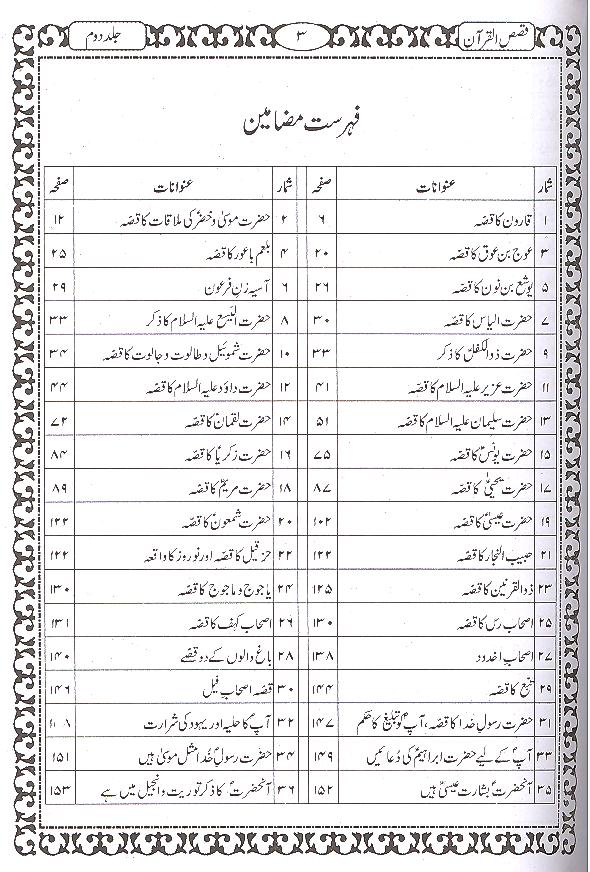 قصص القرآن ۳ جلد دوم
فہرست مضامین
شمار عنوانات صفحہ شمار عنوانات صفحہ
۱ قارون کا قصّہ ۶ ۲ حضرت موسیٰ و خضرؑ کی ملاقات کا قصّہ ۱۲
۳ عوج بن عوق کا قصّہ ۲۰ ۴ بلعم باعور کا قصّہ ۲۵
۵ یوشع بن نون کا قصّہ ۲۶ ۶ آسیہ زنِ فرعون ۲۹
۷ حضرت الیاس کا قصّہ ۳۰ ۸ حضرت الیسع علیہ السلام کا ذکر ۳۳
۹ حضرت ذوالکفلؑ کا ذکر ۳۳ ۱۰ حضرت شموئیل و طالوت و جالوت کا قصّہ ۳۴
۱۱ حضرت عزیر علیہ السلام کا قصّہ ۴۱ ۱۲ حضرت داؤد علیہ السلام کا قصّہ ۴۴
۱۳ حضرت سلیمان علیہ السلام کا قصّہ ۵۱ ۱۴ حضرت لقمانؑ کا قصّہ ۷۲
۱۵ حضرت یونسؑ کا قصّہ ۷۵ ۱۶ حضرت زکریاؑ کا قصّہ ۸۴
۱۷ حضرت یحییٰؑ کا قصّہ ۸۷ ۱۸ حضرت مریمؑ کا قصّہ ۸۹
۱۹ حضرت عیسیٰؑ کا قصّہ ۱۰۲ ۲۰ حضرت شمعونؑ کا قصّہ ۱۲۲
۲۱ حبیب النجار کا قصّہ ۱۲۲ ۲۲ حزقیل کا قصّہ اور نوروز کا واقعہ ۱۲۲
۲۳ ذوالقرنین کا قصّہ ۱۲۵ ۲۴ یاجوج و ماجوج کا قصّہ ۱۳۰
۲۵ اصحاب رس کا قصّہ ۱۳۰ ۲۶ اصحاب کہف کا قصّہ ۱۳۱
۲۷ اصحابِ اخدود ۱۳۸ ۲۸ باغ والوں کے دو قصّے ۱۴۰
۲۹ تبّع کا قصّہ ۱۴۴ ۳۰ قصّہ اصحابِ فیل ۱۴۶
۳۱ حضرت رسولِ خُدا کا قصّہ، آپؐ کو تبلیغ کا حکم ۱۴۷ ۳۲ آپؐ کا حلیہ اور یہود کی شرارت
۳۳ آپؐ کے لیے حضرت ابراہیمؑ کی دُعائیں ۱۴۹ ۳۴ حضرت رسولِؐ خُدا مثل موسیٰؑ ہیں ۱۵۱
۳۵ آنحضرتؐ بشارت عیسیٰؑ ہیں ۱۵۲ ۳۶ آنحضرتؐ کا ذکر توریت و انجیل میں ہے ۱۵۳